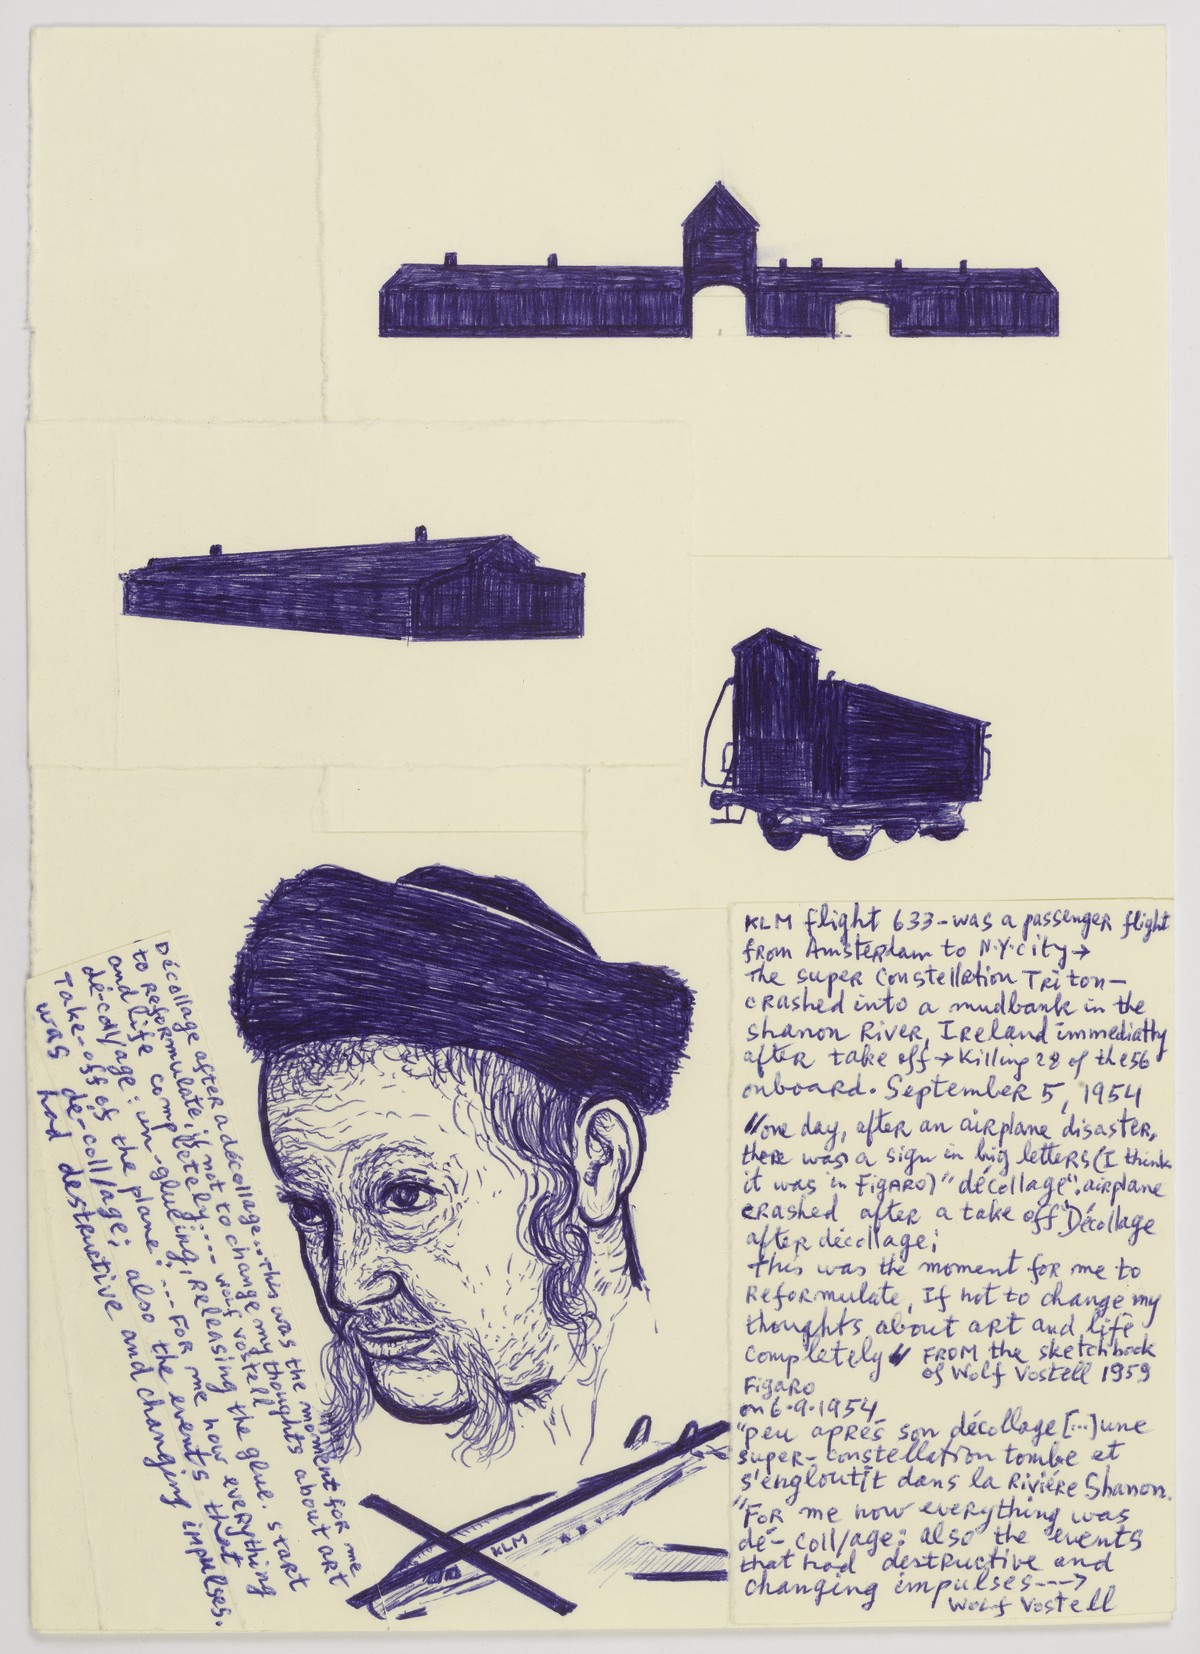 Décollage after a décollage... this was the moment for me
to reformulate, if not to change my thoughts about art
and life completely:---- wolf vostell
dé-coll/age: un-glueing, releasing the glue. start
Take-off of the plane! ---- For me now everything
was de-coll/age; also the events that
had destructive and changing impulses.
KLM
KLM flight 633-was a passenger flight
from Amsterdam to N.Y.city→
The super Constellation Triton—
crashed into a mudbank in the
shanon River, Ireland immediatly
after take off → Killing 28 of the 56
onboard. September 5, 1954
"one day, after an airplane disaster,
there was a sign in big letters (I think
it was in Figaro) "décollage". airplane
crashed after a take off "Décollage
after décollage;
This was the moment for me to
Reformulate, If not to change my
thoughts about art and life
completely" FROM the sketchbook
of Wolf Vostell 1959
Figaro
on 6.9.1954
"peu aprés son décollage [...] une
super-constellation tombe et
s'engloutit dans la Riviére Shanon.
"For me now everything was
dé-coll/age: also the events
that had destructive and
changing impulses--->
Wolf Vostell